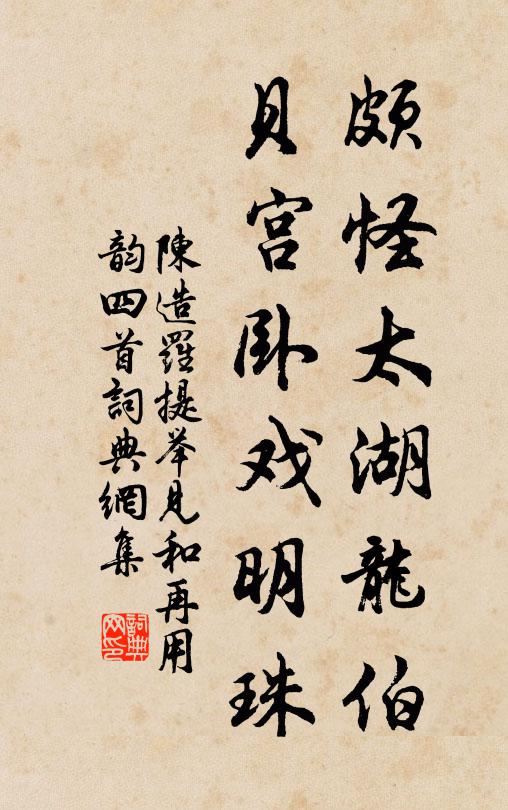 頗怪太湖龍伯
貝宫卧戏明珠
陳造羅提举見和再用
韵四首詞典網集
詞典网印